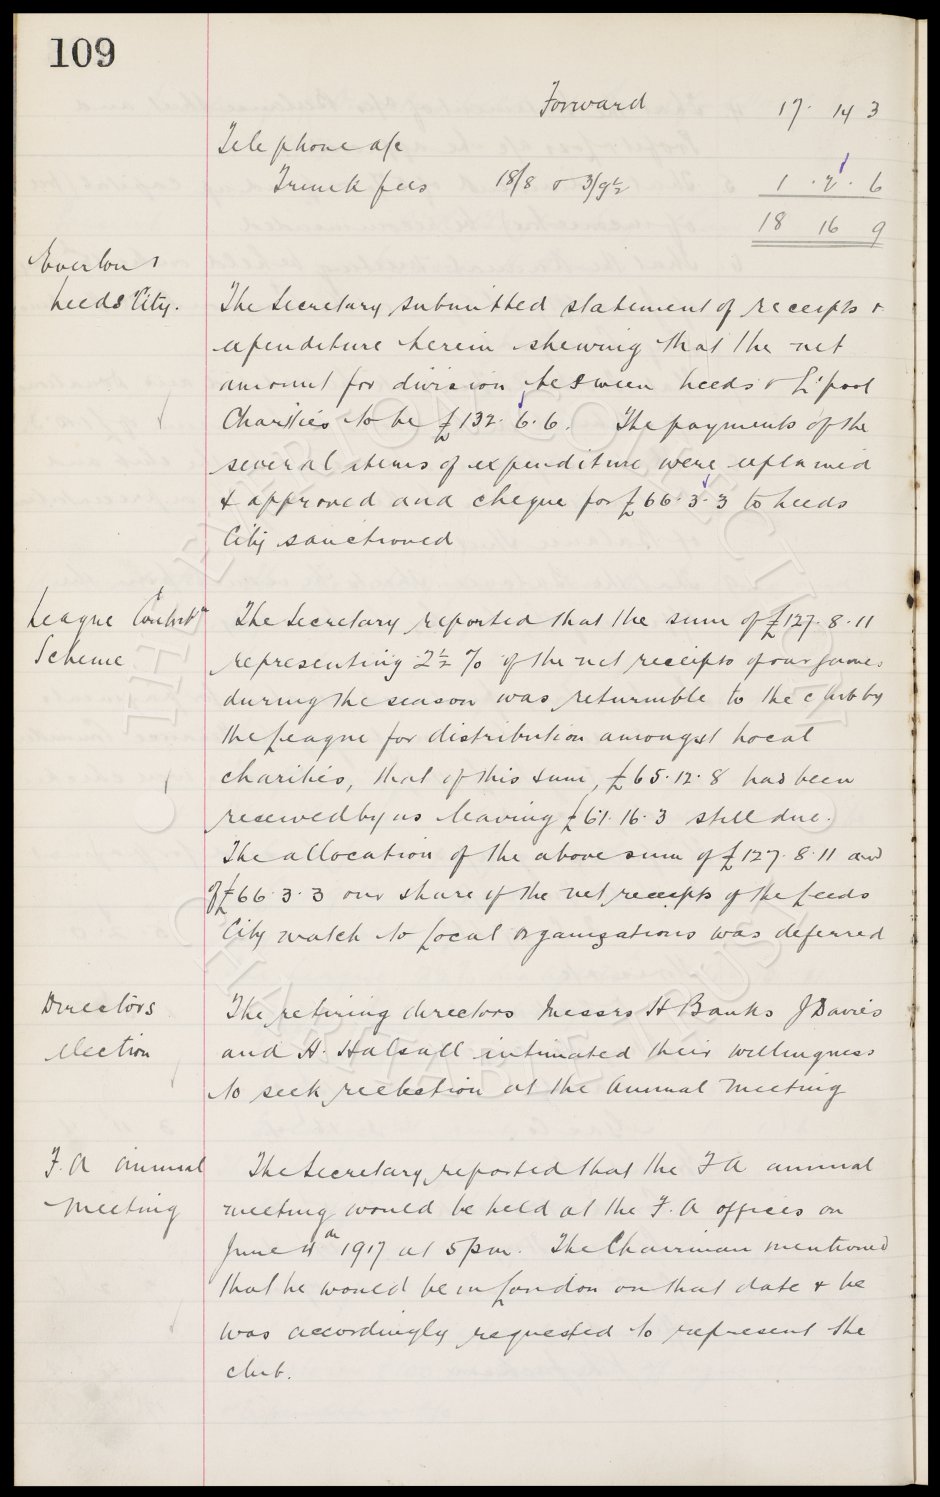 109
Forward 17. 14 3
Telephone a/c
Trunk fees 18/8 & 3/9½ 1 . 2 . 6
18 16 9
Everton v
Leeds City.
The Secretary submitted statement of receipts &
expenditure herein shewing that the net
amount for division between Leeds & L'pool
Charities to be £132. 6. 6. The payments of the
several items of expenditure were explained
& approved and cheque for £66. 3. 3 to Leeds
City sanctioned
League Contribtn
Scheme
The Secretary reported that the sum of £127. 8. 11
representing 2½ % of the net receipts of our games
during the season was returnable to the club by
the League for distribution amongst Local
charities, that of this sum, £65. 12. 8 had been
received by us leaving £61. 16. 3 still due.
The allocation of the above sum of £127. 8. 11 and
of £66. 3. 3 our share of the net receipts of the Leeds
City match to Local Organizations was deferred
Directors
election
The retiring directors Messrs H Banks J Davies
and H. Halsall intimated their willingness
to seek reelection at the Annual Meeting
F. A annual
meeting
The Secretary reported that the F A annual
meeting would be held at the F. A offices on
June 4th 1917 at 5 p.m. The Chairman mentioned
that he would be in London on that date & he
was accordingly requested to represent the
club.
THE EVERTON COLLECTION CHARITABLE TRUST